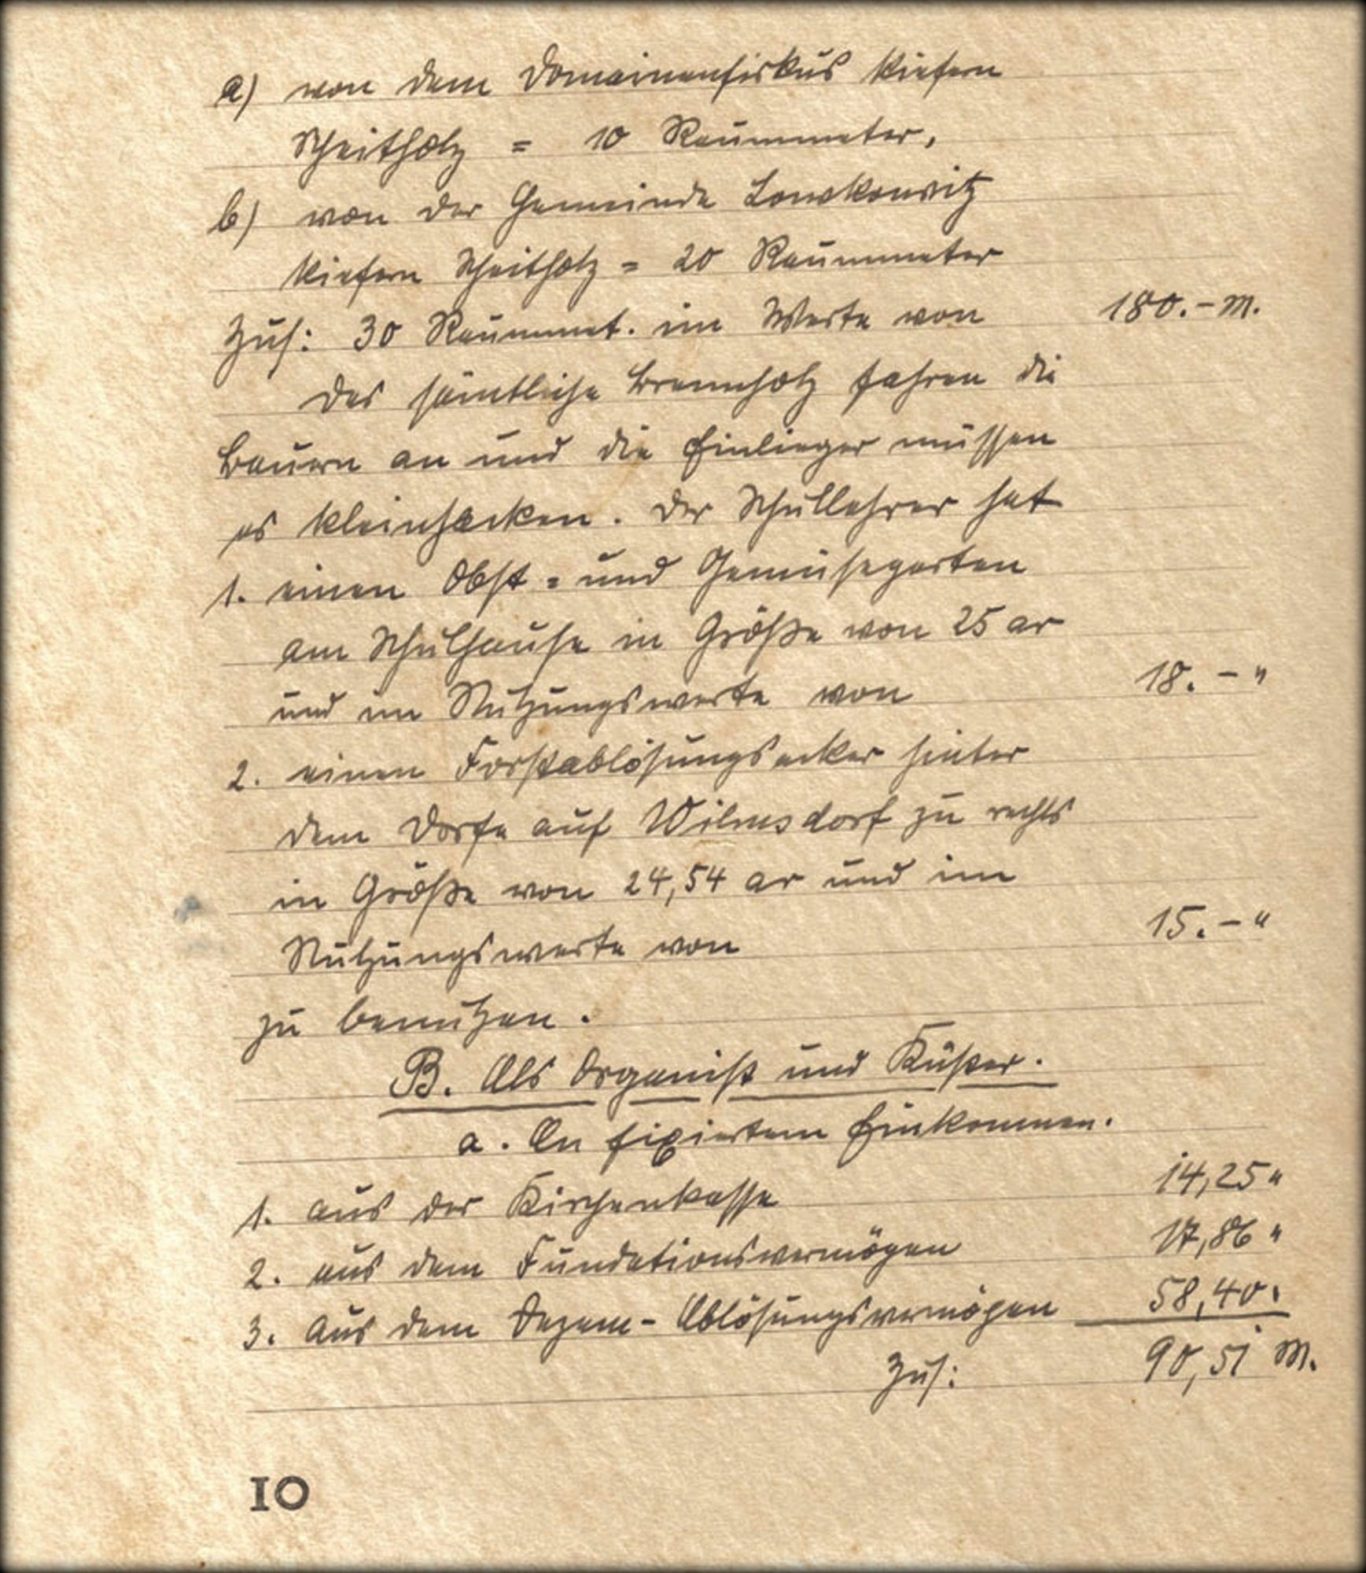 a) von dem Domainenfiskus kiefern
Scheitholz = 10 Raummeter,
b) von der Gemeinde Lowkowitz
kiefern Scheitholz = 20 Raummeter
Zus: 30 Raummet. im Werte von 180.- M.
Das sämtliche Brennholz fahren die
Bauern an und die Einlieger müssen
es kleinhacken. Der Schullehrer hat
1. einen Obst- und Gemüsegarten
am Schulhause in Größe von 25 ar
und im Nutzungswerte von 18.- "
2. einen Forstablösungsacker hinter
dem Dorfe auf Wilmsdorf zu rechts
in Größe von 24,54 ar und im
Nutzungswerte von 15.- "
zu benutzen.
B. Als Organist und Küster.
a. An fixiertem Einkommen.
1. aus der Kirchenkasse 14,25 "
2. aus dem Fundationsvermögen 17,86 "
3. Aus dem Dezem-Ablösungsvermögen 58,40.
Zus: 90,51 M.
10